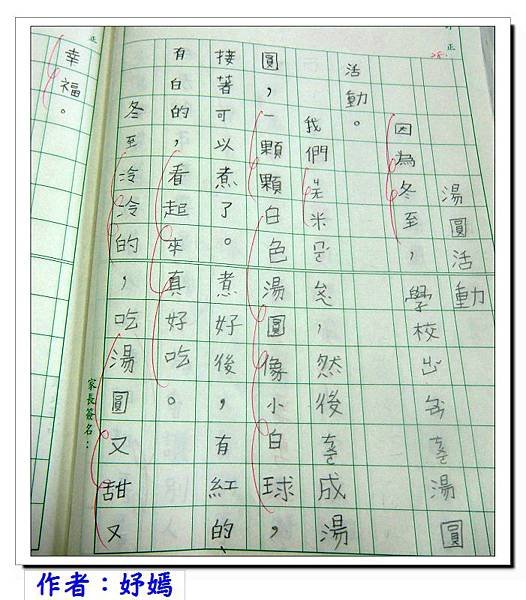 湯圓活動
因為冬至，學校出湯圓
活動。
我們先米，然後成湯
圓，一顆顆白色湯圓像小白球，
接著可以煮了。煮好後，有紅的、
有白的，看起來真好吃。
冬至冷冷的，吃湯圓又甜又
家長簽名：
幸福。
作者：妤嫣